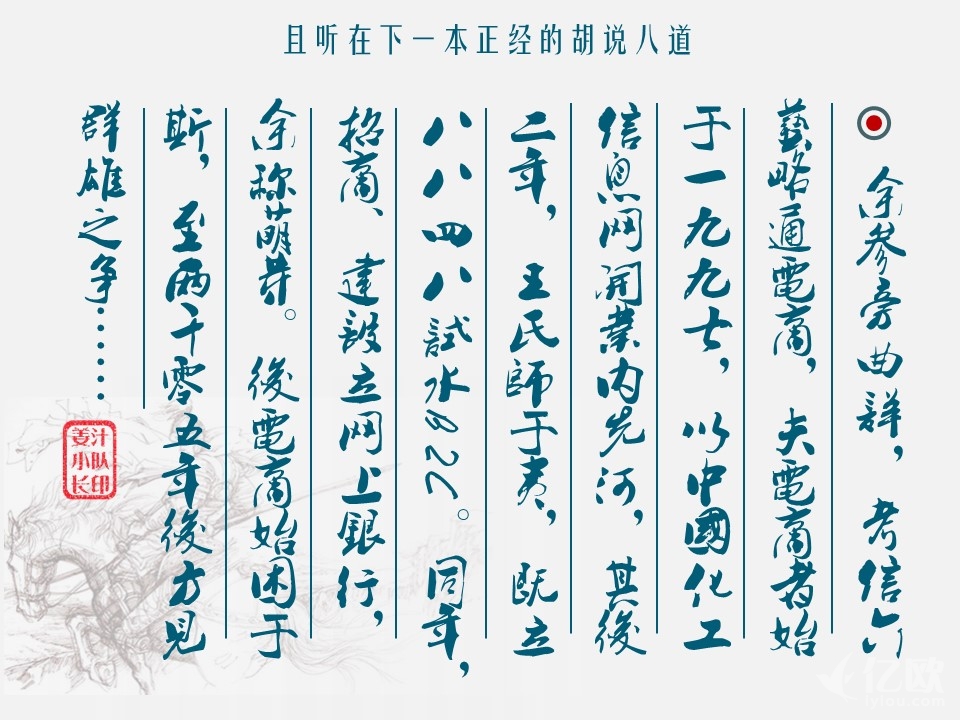 且听在下一本正经的胡说八道
余参旁曲群，考信六
藝略通電商，夫電商者始
于一九九七，以中國化工
信息网開業内先河，其後
二年，王氏師于夷，既立
八八四八試水B2C。同年，
招商、建設立网上銀行，
余称萌芽。後電商始困于
斯，至两千零五年後方見
群雄之争……
姜汁
小队
长印
亿欧
iyiou.com